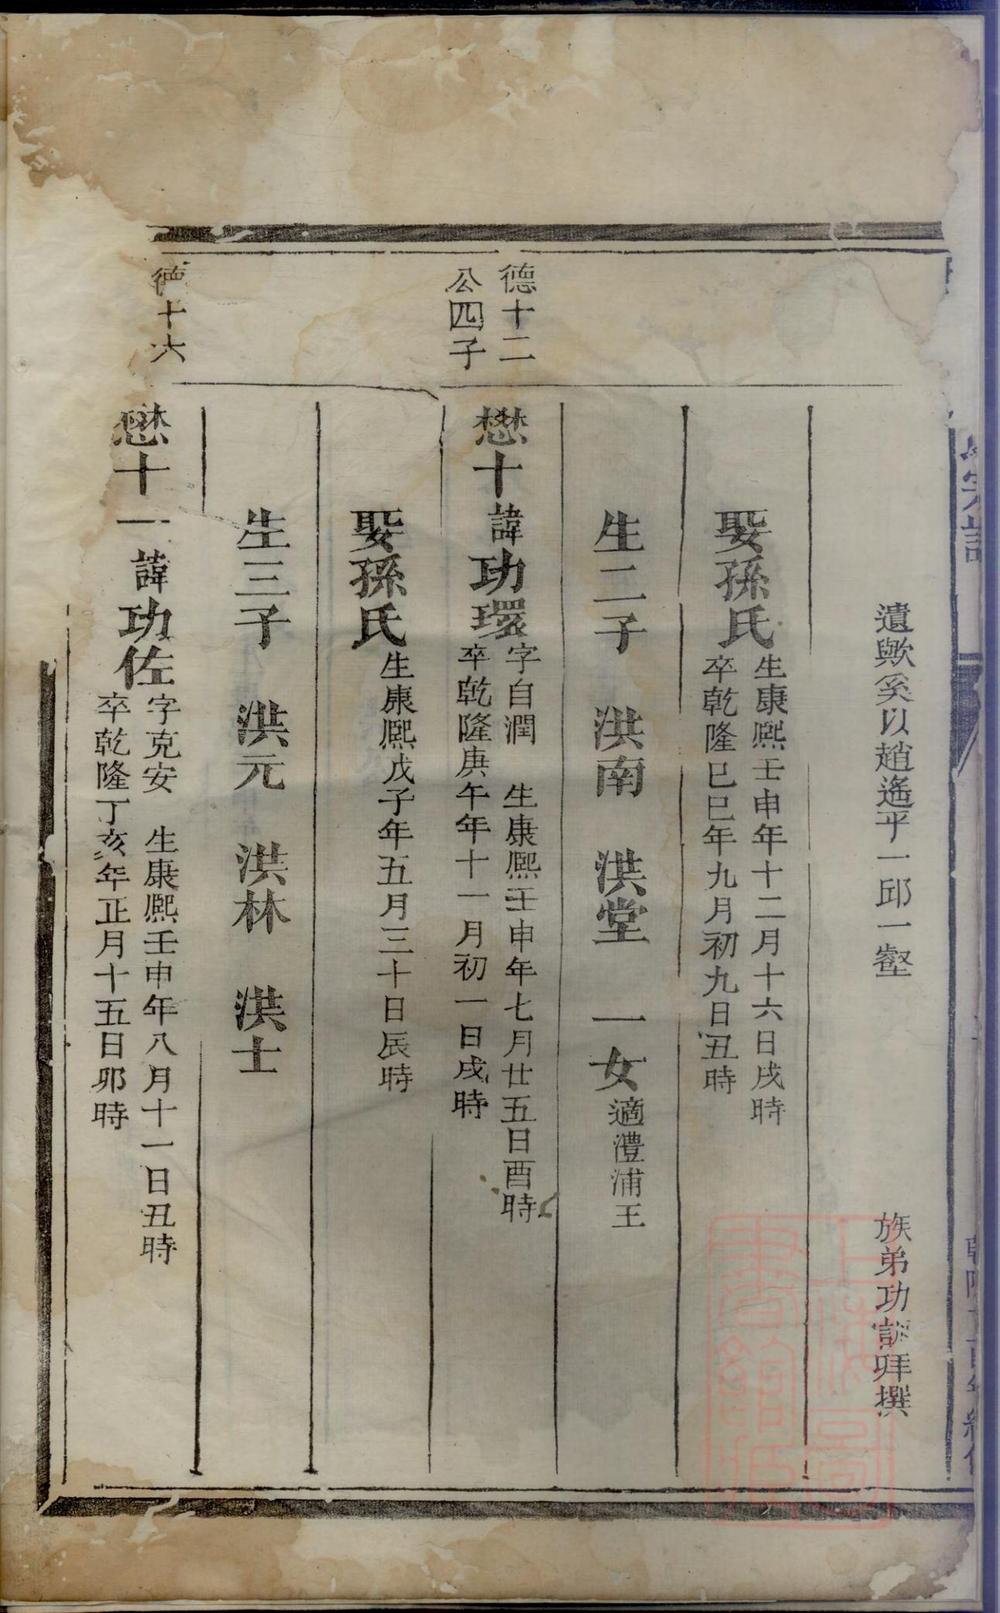 遺歟奚以趙遙平一邱一壑
族弟功訟拜撰
娶孫氏
生康熙壬申年十二月十六日戌時
卒乾隆己巳年九月初九日丑時
生二子 洪南 洪堂 一女適澧浦王
德十二
公四子
懋十諱功環
字自潤 生康熙壬申年七月廿五日酉時
卒乾隆庚午年十一月初一日戌時
娶孫氏
生康熙戊子年五月三十日辰時
生三子 洪元 洪林 洪士
德十六
懋十一諱功佐
字克安 生康熙壬申年八月十一日丑時
卒乾隆丁亥年正月十五日卯時
上海圖書館藏